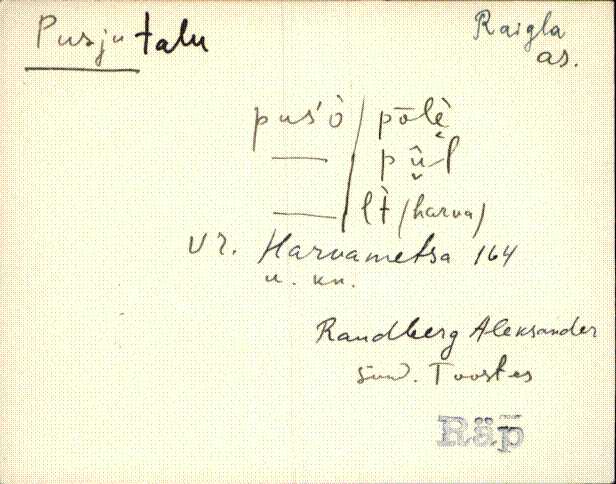 Pusju talu
Raigla
as.
pus'ò / pōlè̬
— / pû̬l
— / lt̀ (harva)
vr. Harvametsa 164
u. kn.
Randberg Aleksander
sünd. Toostes
Räp